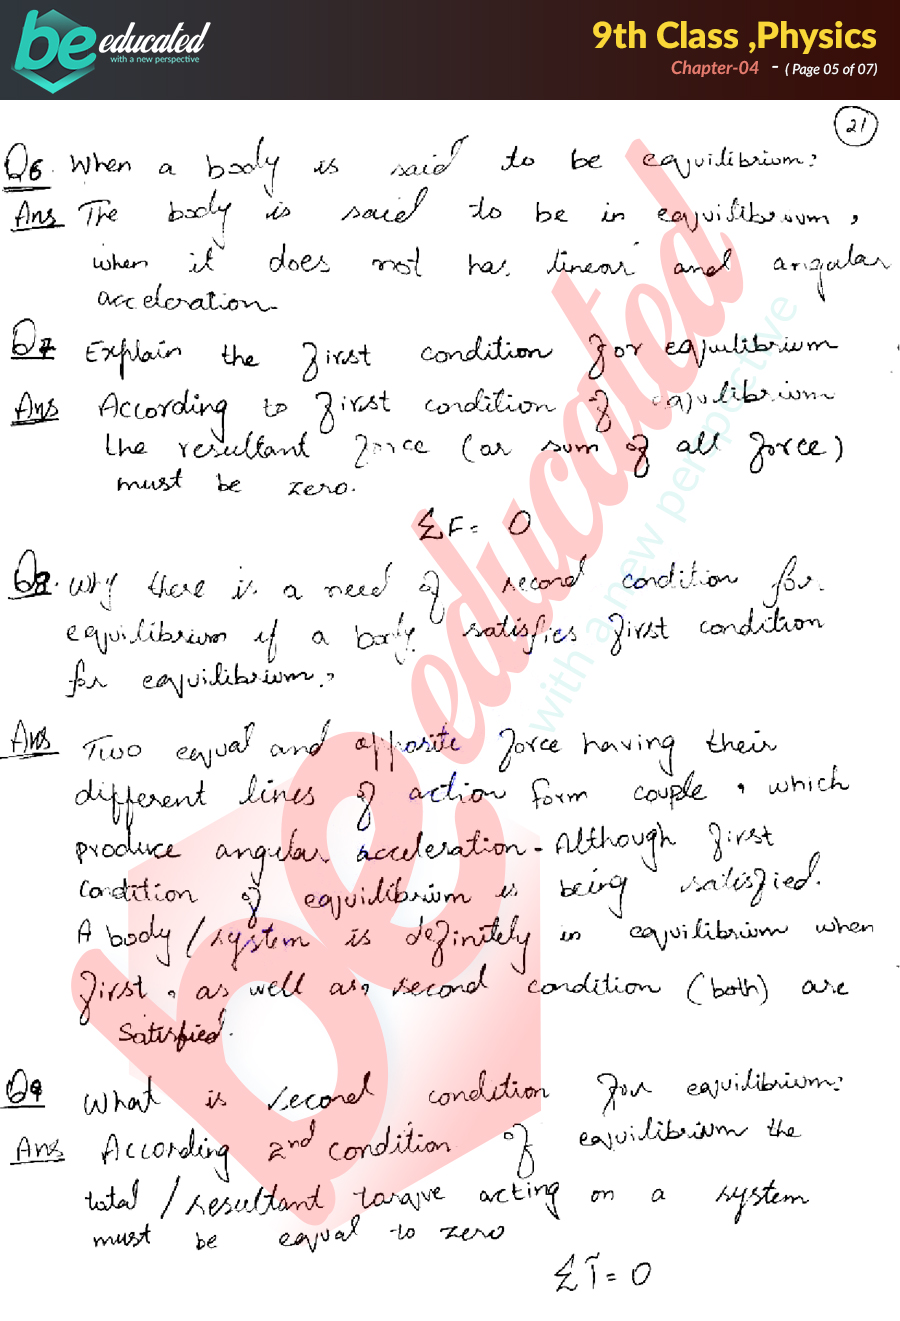 be educated
with a new perspective
9th Class ,Physics
Chapter-04 - ( Page 05 of 07)
21
Q6. When a body is said to be equilibrium?
Ans The body is said to be in equilibrium,
when it does not has linear and angular
acceleration.
Q7 Explain the first condition for equilibrium
Ans According to first condition of equilibrium
the resultant force (or sum of all force)
must be zero.
ΣF = 0
Q8. Why there is a need of second condition for
equilibrium if a body satisfies first condition
for equilibrium?
Ans Two equal and opposite force having their
different lines of action form couple, which
produce angular acceleration. Although first
condition of equilibrium is being satisfied.
A body / system is definitely in equilibrium when
first, as well as, second condition (both) are
satisfied.
Q9 What is second condition for equilibrium?
Ans According 2nd condition of equilibrium the
total / resultant torque acting on a system
must be equal to zero
Στ = 0
be educated
with a new perspective